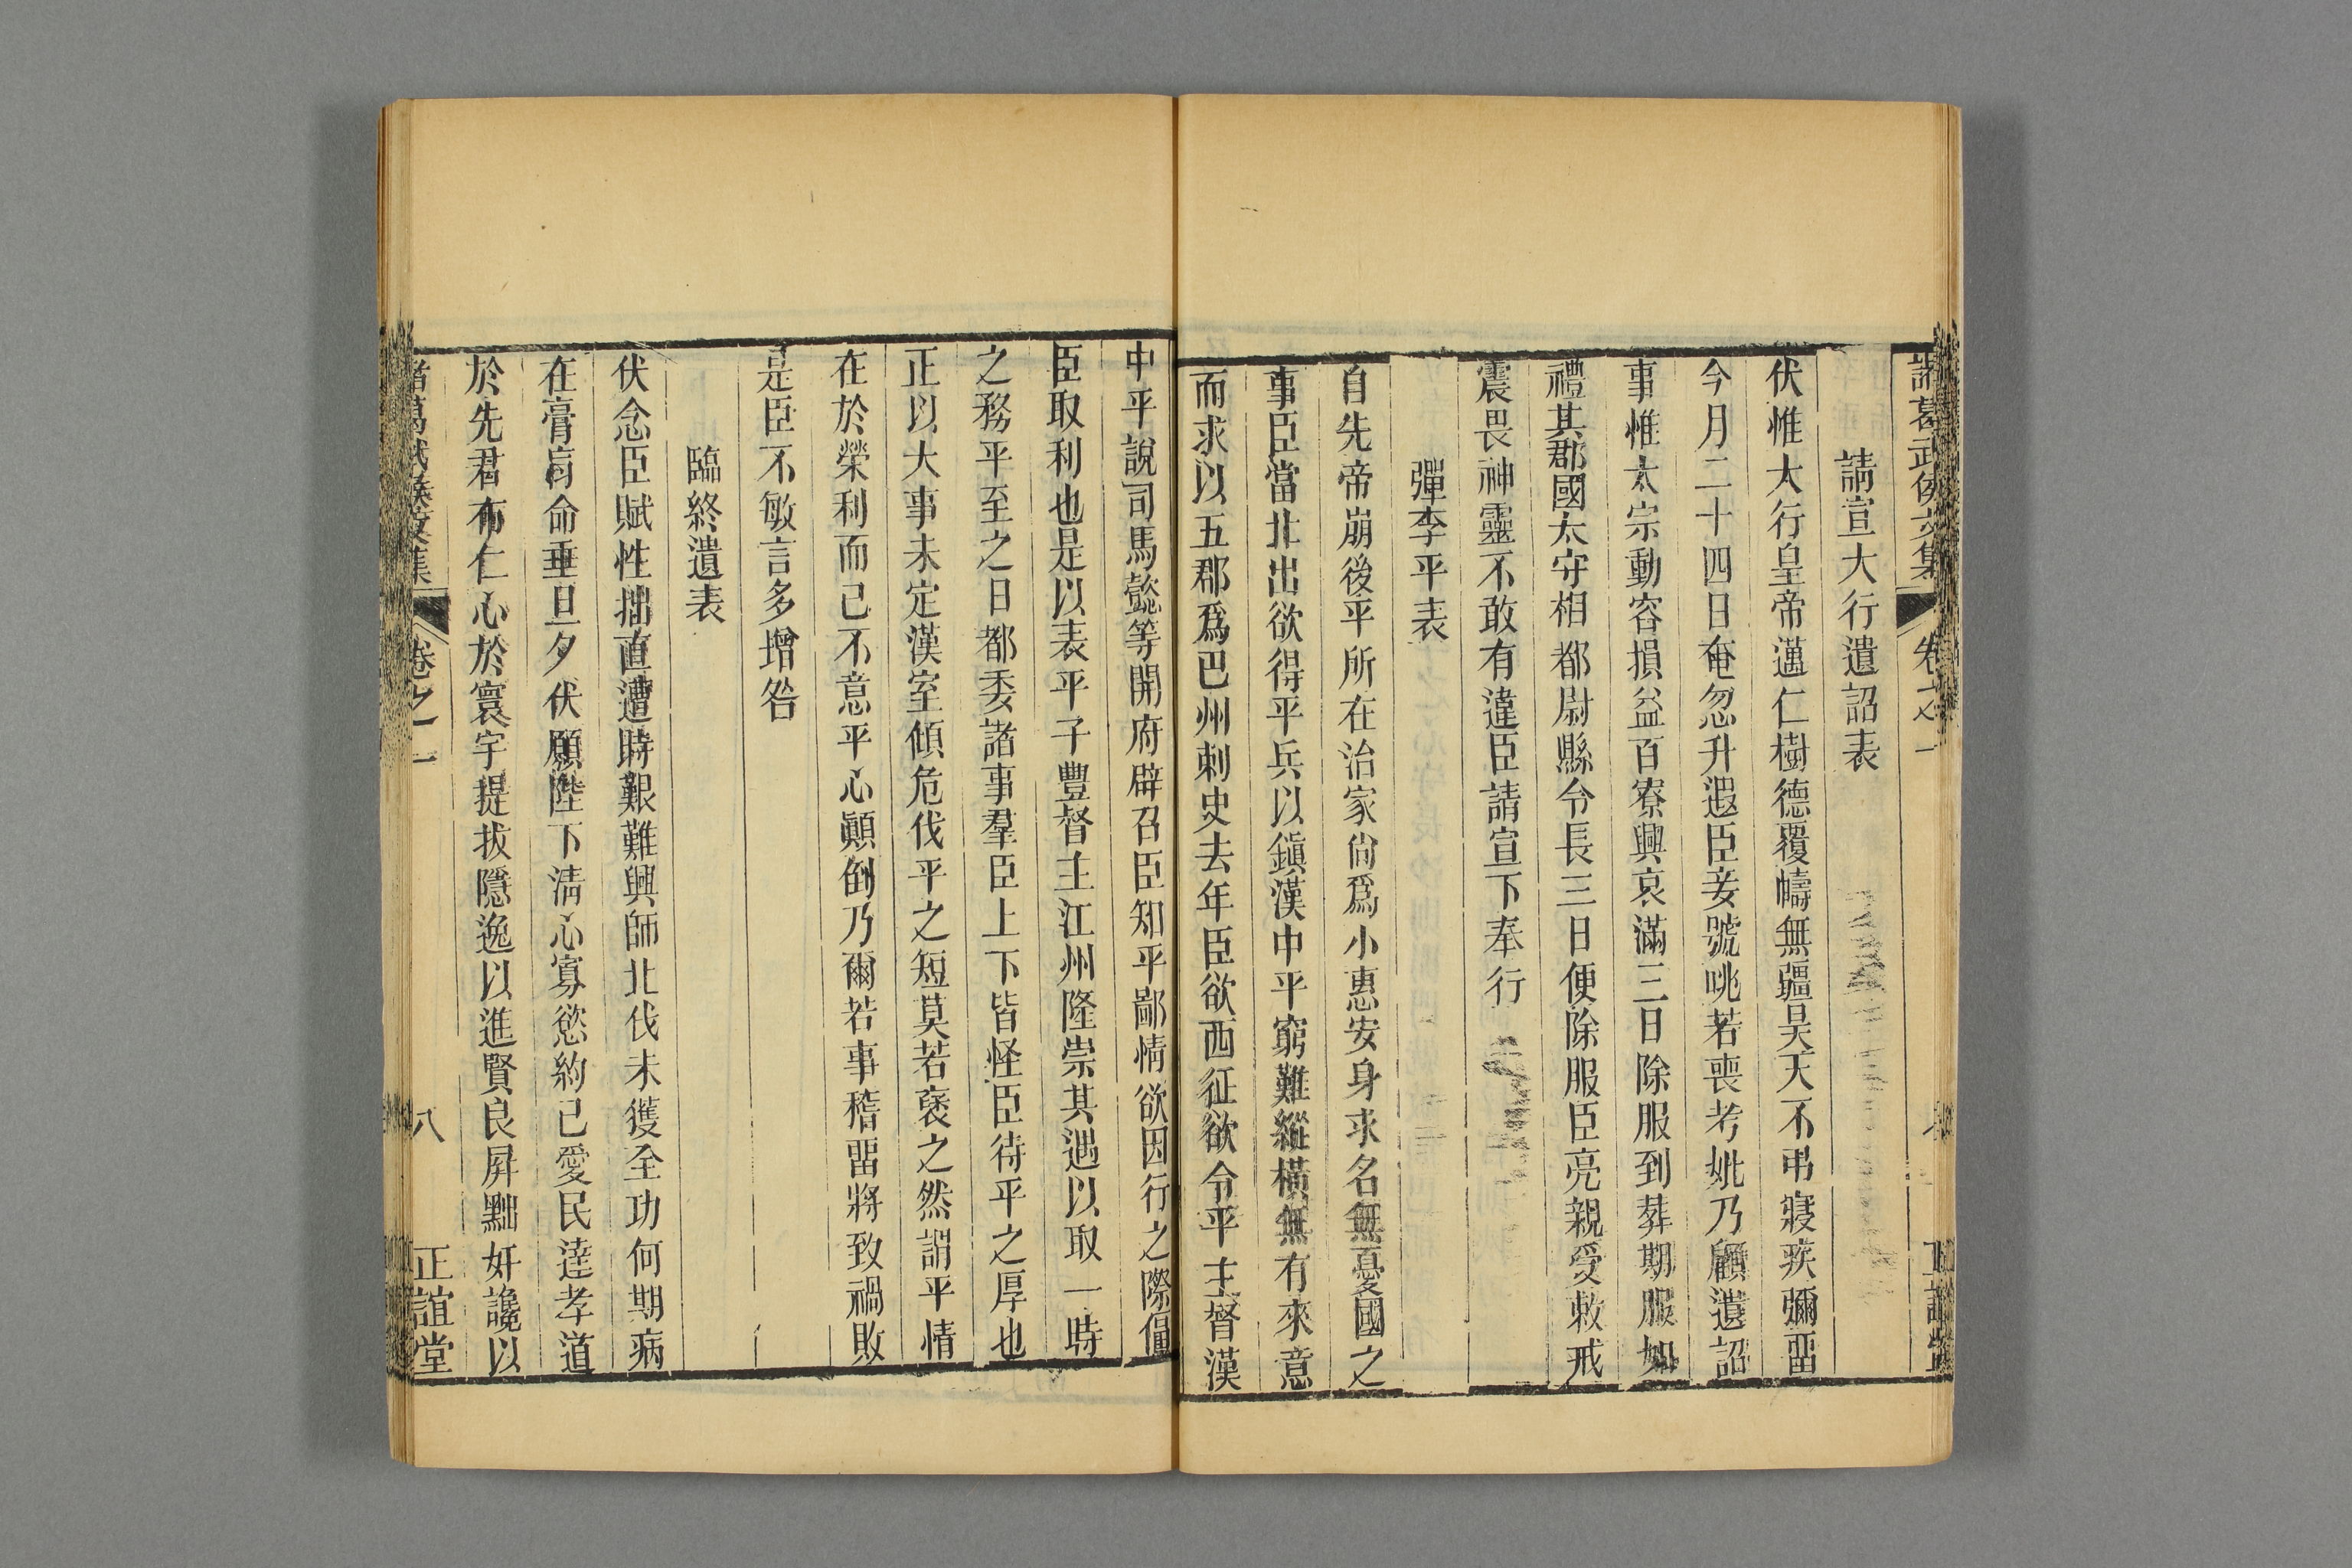 諸葛武侯文集 卷之一 正誼堂
請宣大行遺詔表
伏惟大行皇帝邁仁樹德覆幬無疆昊天不弔寢疾彌畱
今月二十四日奄忽升遐臣妾號咷若喪考妣乃顧遺詔
事惟太宗動容損益百寮興哀滿三日除服到葬期服如
禮其郡國太守相都尉縣令長三日便除服臣亮親受敕戒
震畏神靈不敢有違臣請宣下奉行
彈李平表
自先帝崩後平所在治家尙爲小惠安身求名無憂國之
事臣當北出欲得平兵以鎭漢中平窮難縱橫無有來意
而求以五郡爲巴州刺史去年臣欲西征欲令平主督漢
中平說司馬懿等開府辟召臣知平鄙情欲因行之際偪
臣取利也是以表平子豐督主江州隆崇其遇以取一時
之務平至之日都委諸事羣臣上下皆怪臣待平之厚也
正以大事未定漢室傾危伐平之短莫若襃之然謂平情
在於榮利而已不意平心顚倒乃爾若事稽畱將致禍敗
是臣不敏言多增咎
臨終遺表
伏念臣賦性拙直遭時艱難興師北伐未獲全功何期病
在膏肓命垂旦夕伏願陛下淸心寡慾約己愛民達孝道
於先君布仁心於寰宇提拔隱逸以進賢良屛黜奸讒以
諸葛武侯文集 卷之一 八 正誼堂